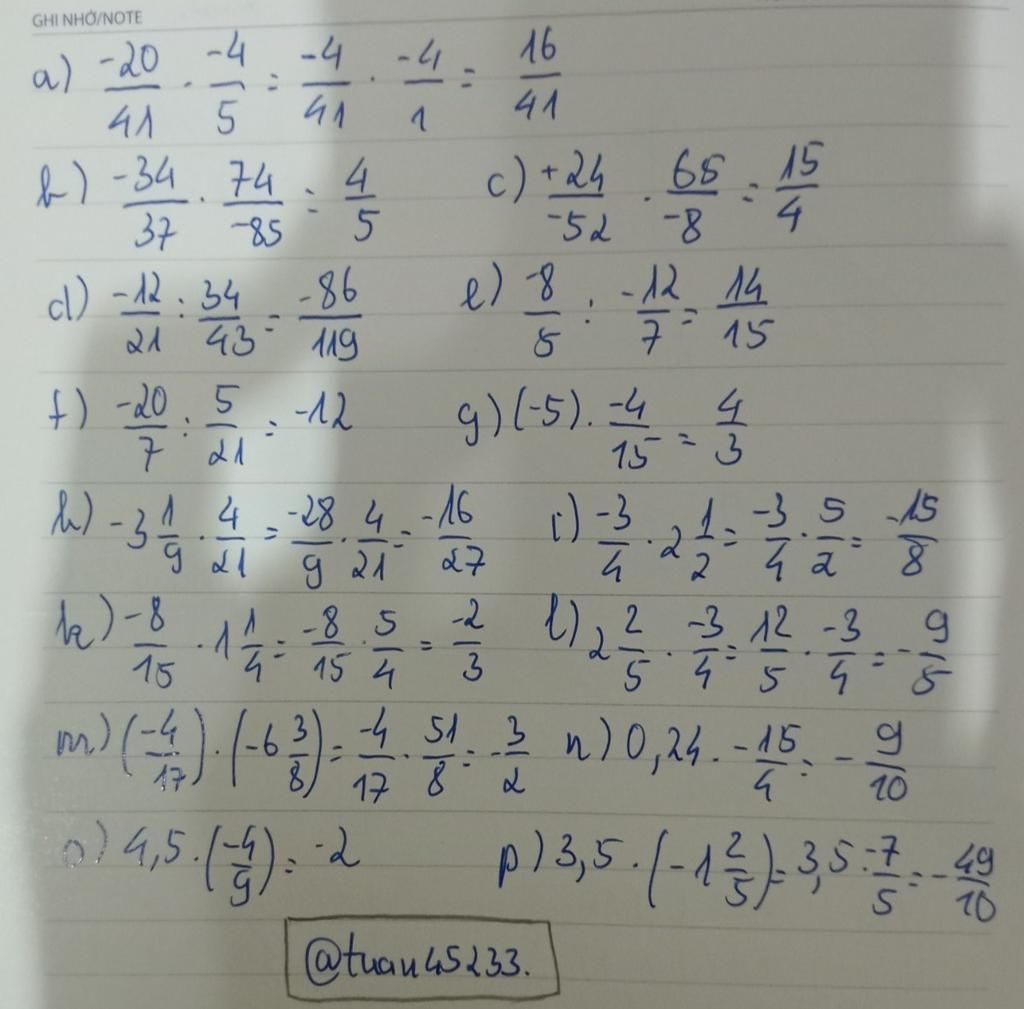 GHI NHỚ/NOTE
a) -20/41 . -4/5 = -4/41 . -4/1 = 16/41
b) -34/37 . 74/-85 = 4/5 c) +24/-52 . 65/-8 = 15/4
d) -12/21 : 34/43 = -86/119 e) -8/5 : -12/7 = 14/15
f) -20/7 : 5/21 = -12 g) (-5) . -4/15 = 4/3
h) -3 1/9 . 4/21 = -28/9 . 4/21 = -16/27 i) -3/4 . 2 1/2 = -3/4 . 5/2 = -15/8
k) -8/15 . 1 1/4 = -8/15 . 5/4 = -2/3 l) 2 2/5 . -3/4 = 12/5 . -3/4 = -9/5
m) (-4/17) . (-6 3/8) = -4/17 . 51/8 = -3/2 n) 0,24 . -15/4 = -9/10
o) 4,5 . (-4/9) = -2 p) 3,5 . (-1 2/5) = 3,5 . -7/5 = -49/10
@tuan45233.